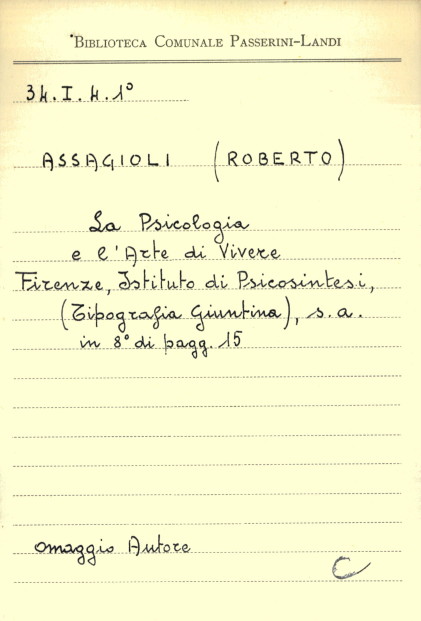 BIBLIOTECA COMUNALE PASSERINI-LANDI
34.I.4.1°
ASSAGIOLI (ROBERTO)
La Psicologia
e l'Arte di Vivere
Firenze, Istituto di Psicosintesi,
(Tipografia Giuntina), s.a.
in 8° di pagg. 15
omaggio Autore
C